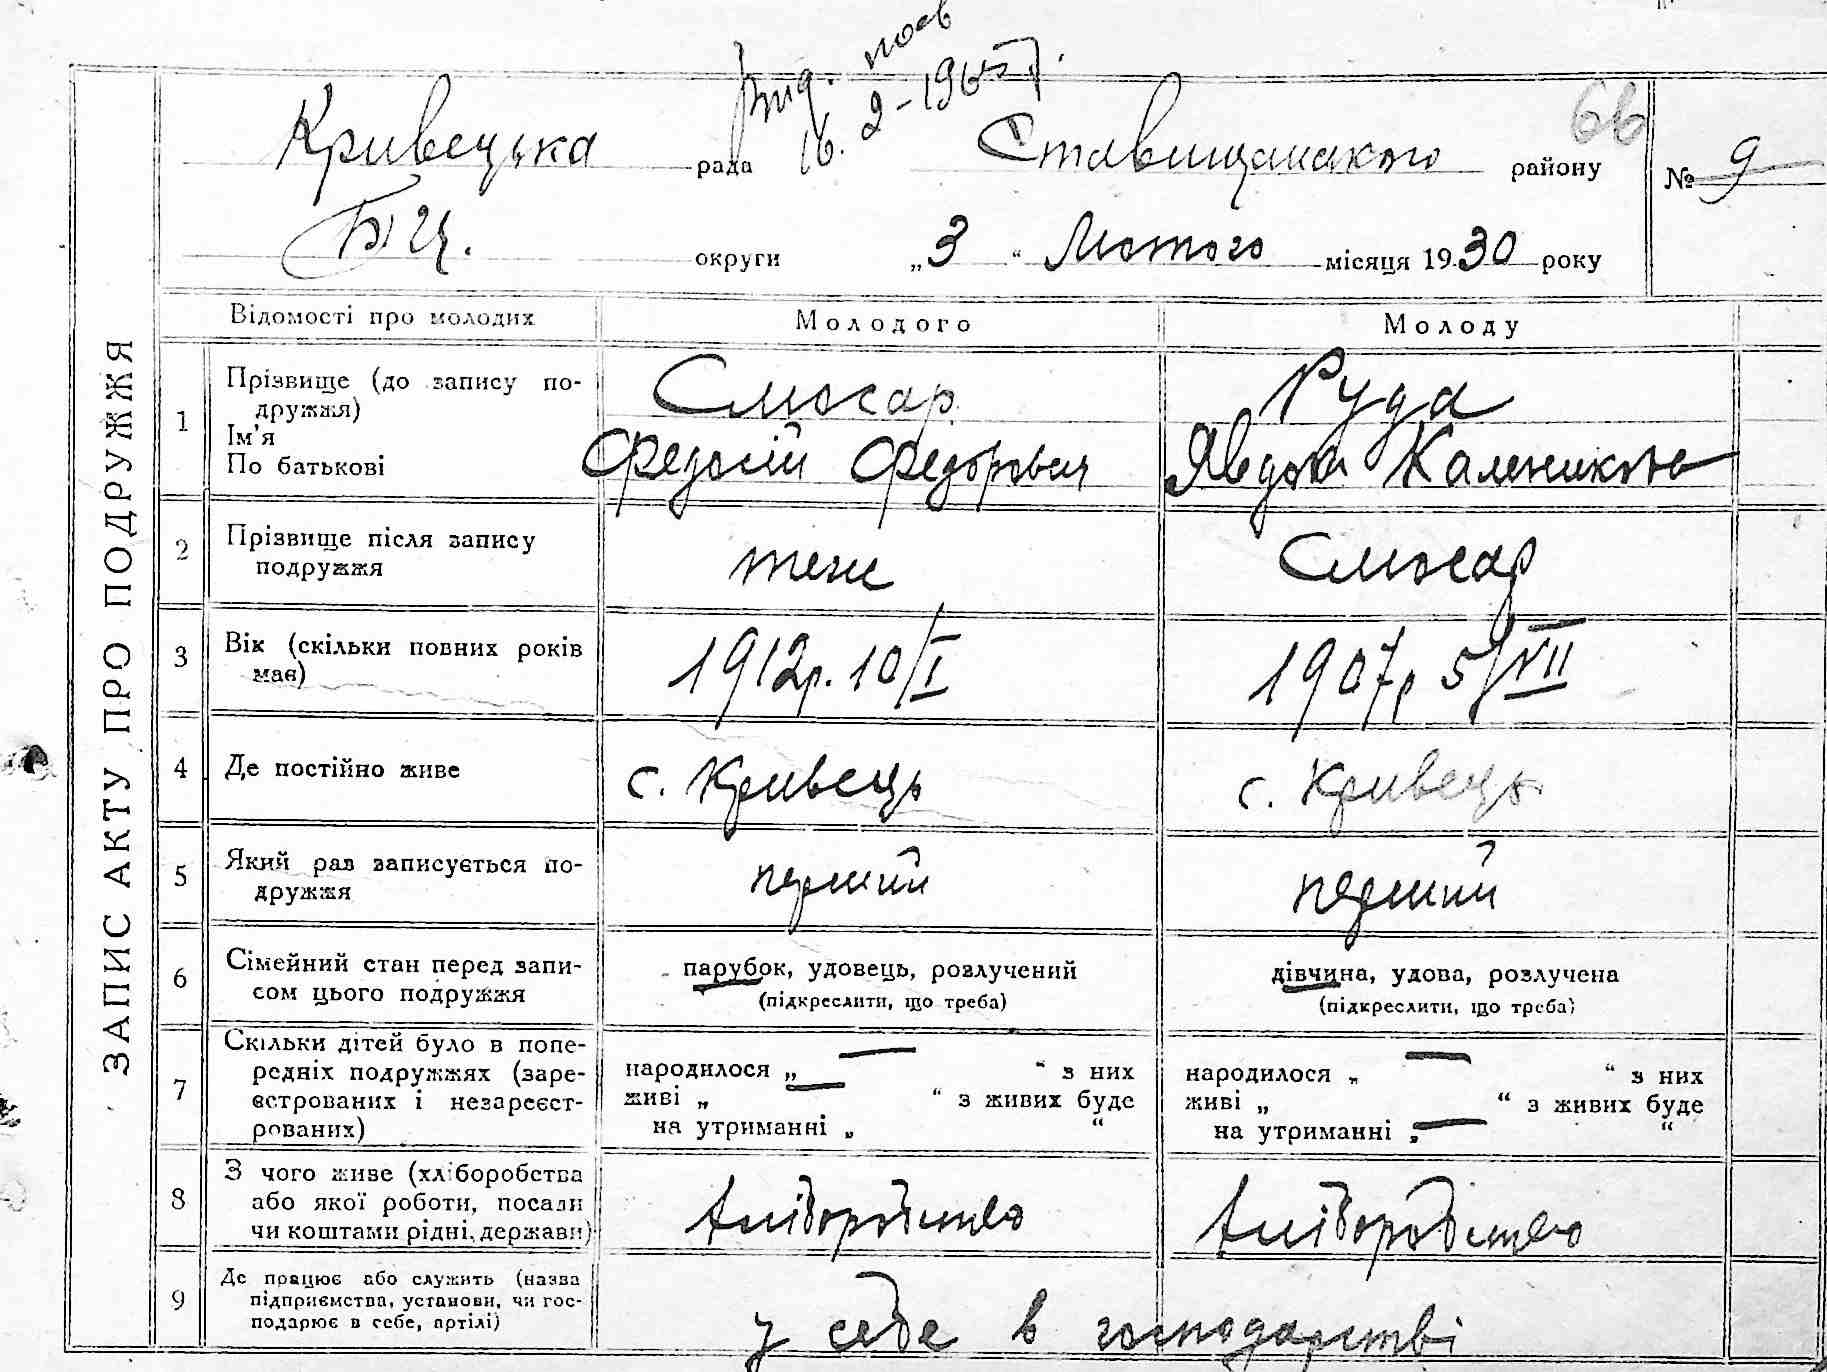 Вид. посв
16. 2-1965 р.
66
Кривецька рада Ставищанського району № 9
БЦ. округи „3“ Лютого місяця 1930 року
ЗАПИС АКТУ ПРО ПОДРУЖЖЯ
Відомості про молодих Молодого Молоду
1 Прізвище (до запису по-
дружжя)
Ім'я
По батькові
Слюсар
Федосій Федорович
Руда
Явдоха Калениковна
2 Прізвище після запису
подружжя
теж
Слюсар
3 Вік (скільки повних років
має)
1912р. 10/I
1907р 5/VII
4 Де постійно живе
с. Кривець
с. Кривець
5 Який раз записується по-
дружжя
перший
перший
6 Сімейний стан перед запи-
сом цього подружжя
парубок, удовець, розлучений
(підкреслити, що треба)
дівчина, удова, розлучена
(підкреслити, що треба)
7 Скільки дітей було в попе-
редніх подружжях (заре-
єстрованих і незареєст-
рованих)
народилося „ — “ з них
живі „ — “ з живих буде
на утриманні „ “
народилося „ — “ з них
живі „ “ з живих буде
на утриманні „ — “
8 З чого живе (хліборобства
або якої роботи, посади
чи коштами рідні, держави)
хліборобство
хліборобство
9 Де працює або служить (назва
підприємства, установи, чи гос-
подарює в себе, артілі)
у себе в господарстві